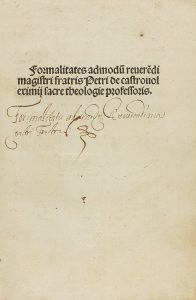 Formalitates admodū reverēdi
magistri fratris Petri de castrovol
eximij sacre theologie professoris.
Formalitates admodum Reverendi